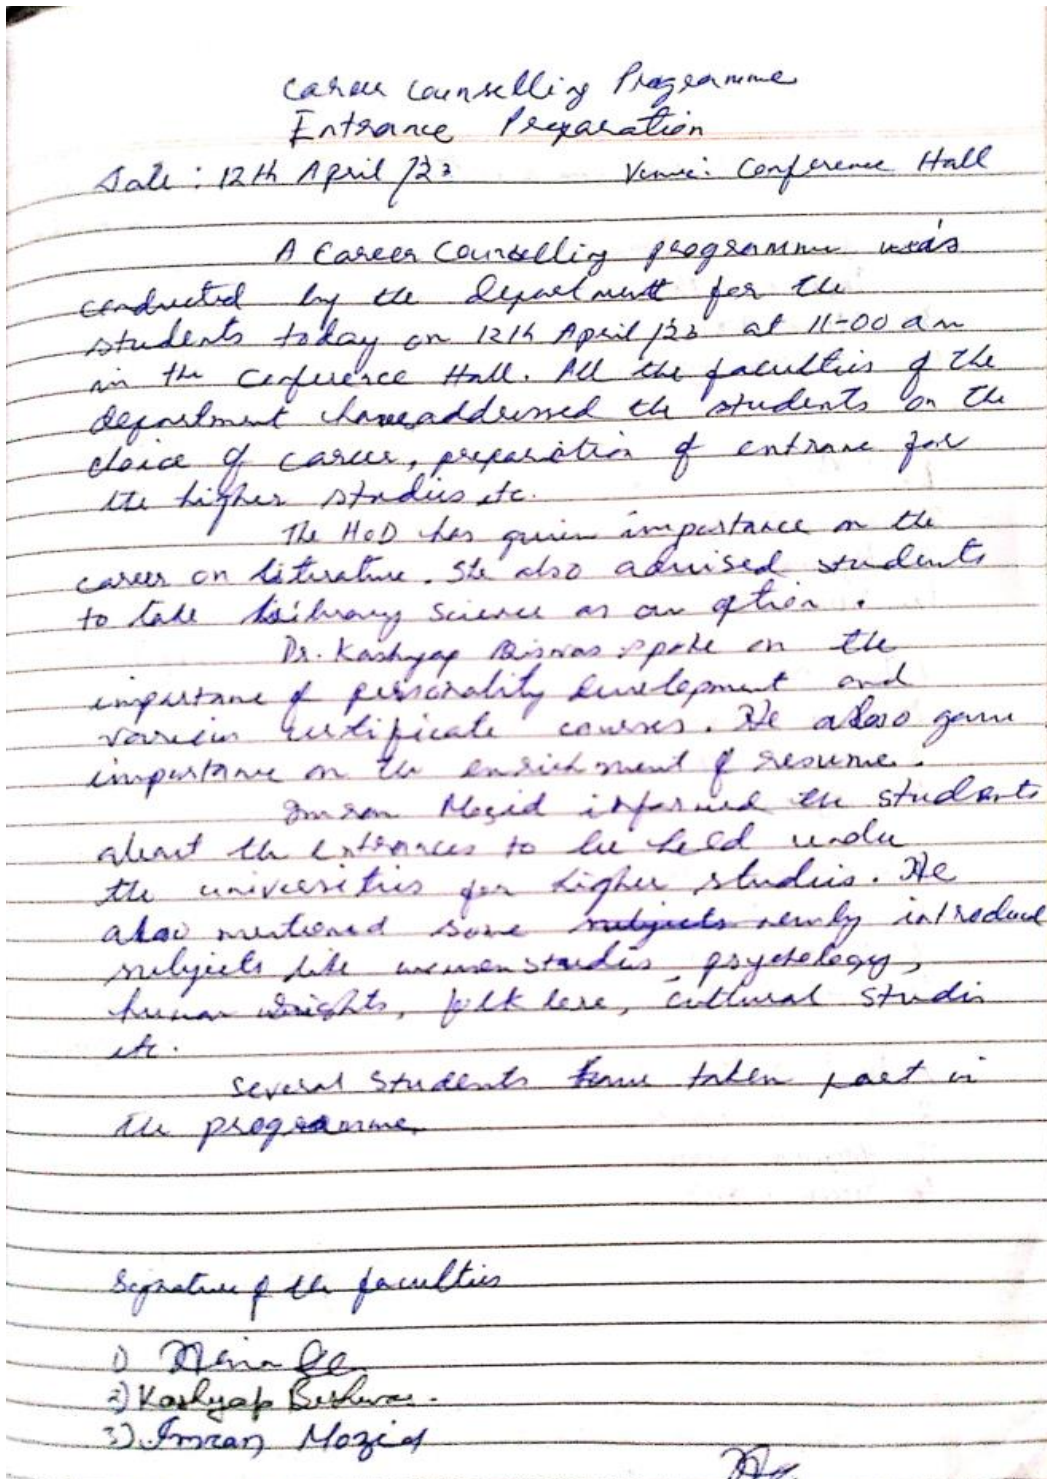 Career Counselling Programme
Entrance Preparation
Date: 12th April /23 Venue: Conference Hall
A Career Counselling programme was
conducted by the department for the
students today on 12th April /23 at 11-00 am
in the Conference Hall. All the faculties of the
department have addressed the students on the
choice of career, preparation of entrance for
the higher studies etc.
The HoD has given importance on the
career on literature. She also advised students
to take library science as an option.
Dr. Kashyap Biswas spoke on the
importance of personality development and
various certificate courses. He also gave
importance on the enrichment of resume.
Imran Mozid informed the students
about the entrances to be held under
the universities for higher studies. He
also mentioned some subjects newly introduced
subjects like women studies psychology,
human rights, folk lore, cultural studies
etc.
Several students have taken part in
the programme.
Signature of the faculties
1)
2) Kashyap Bishwas.
3) Imran Mozid